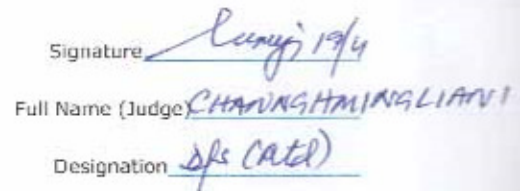 Signature 19/4
Full Name (Judge) CHANNGHMINGLIANI
Designation DFS (Rtd)